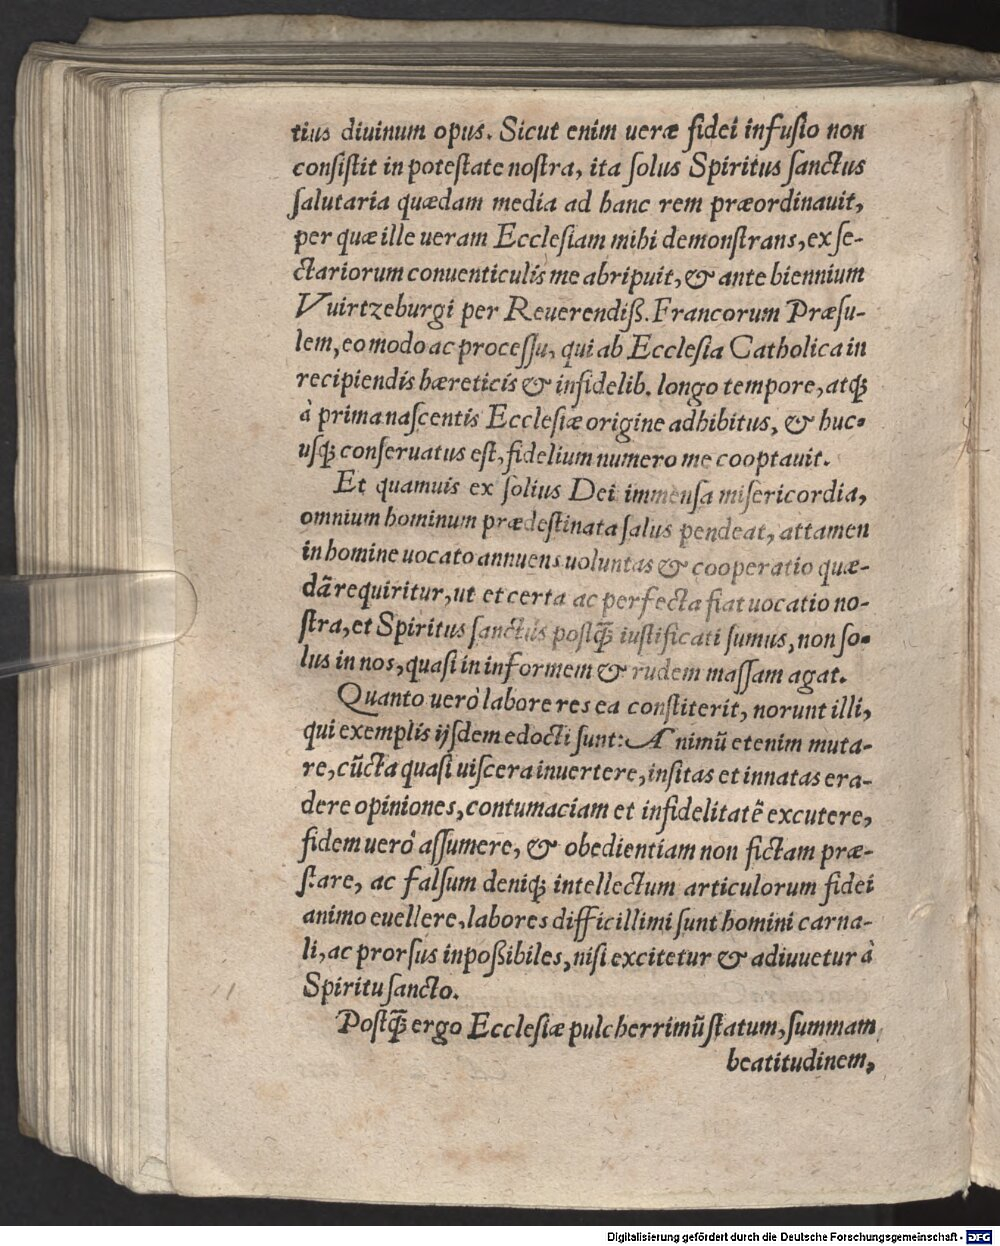 tius diuinum opus. Sicut enim ueræ fidei infuſio non
conſiſtit in poteſtate noſtra, ita ſolus Spiritus ſanctus
ſalutaria quædam media ad hanc rem præordinauit,
per quæ ille ueram Eccleſiam mihi demonſtrans, ex ſe-
ctariorum conuenticulis me abripuit, & ante biennium
Vuirtzeburgi per Reuerendiß. Francorum Præſu-
lem, eo modo ac proceſſu, qui ab Eccleſia Catholica in
recipiendis hæreticis & infidelib. longo tempore, atq;
à prima naſcentis Eccleſiæ origine adhibitus, & huc-
uſq; conſeruatus eſt, fidelium numero me cooptauit.
Et quamuis ex ſolius Dei immenſa miſericordia,
omnium hominum prædeſtinata ſalus pendeat, attamen
in homine uocato annuens uoluntas & cooperatio quæ-
dã requiritur, ut et certa ac perfecta fiat uocatio no-
ſtra, et Spiritus ſanctus poſtq̃ iuſtificati ſumus, non ſo-
lus in nos, quaſi in informem & rudem maſſam agat.
Quanto uerò labore res ea conſtiterit, norunt illi,
qui exemplis ijſdem edocti ſunt: Animũ etenim muta-
re, cũcta quaſi uiſcera inuertere, inſitas et innatas era-
dere opiniones, contumaciam et infidelitatẽ excutere,
fidem uerò aſſumere, & obedientiam non fictam præ-
ſtare, ac falſum deniq; intellectum articulorum fidei
animo euellere, labores difficillimi ſunt homini carna-
li, ac prorſus inpoßibiles, niſi excitetur & adiuuetur à
Spiritu ſancto.
Poſtq̃ ergo Eccleſiæ pulcherrimũ ſtatum, ſummam
beatitudinem,
Digitalisierung gefördert durch die Deutsche Forschungsgemeinschaft - DFG